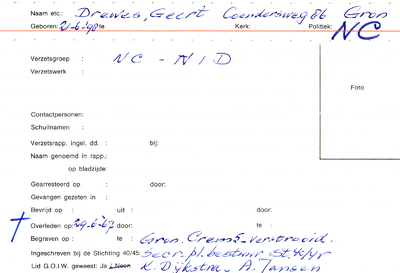 Naam etc.: Drewes, Geert Coendersweg 66 Gron
Geboren: 21-6-'98 te Kerk: Politiek: NC
Verzetsgroep : NC - NID
Verzetswerk :
Foto
Contactpersonen:
Schuilnamen :
Verzetsrapp. ingel. dd. : bij:
Naam genoemd in rapp.:
op bladzijde:
Gearresteerd op : door:
Gevangen gezeten in :
Bevrijd op : uit : door:
Overleden op: 29-6-67 door: te:
Begraven op : te : Gron. Crem. - verstrooid.
Ingeschreven bij de Stichting 40/45: Secr. pl. bestuur St. 40/45
Lid G.O.I.W. geweest: Ja / Neen K. Dijkstra - A. Jansen